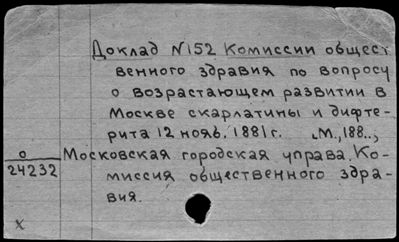 Доклад №152 Комиссии общест
венного здравия по вопросу
о возрастающем развитии в
Москве скарлатины и дифте-
рита 12 нояб. 1881 г. М., 188..,
о
24232
Московская городская управа. Ко-
миссия общественного здра-
вия.
х